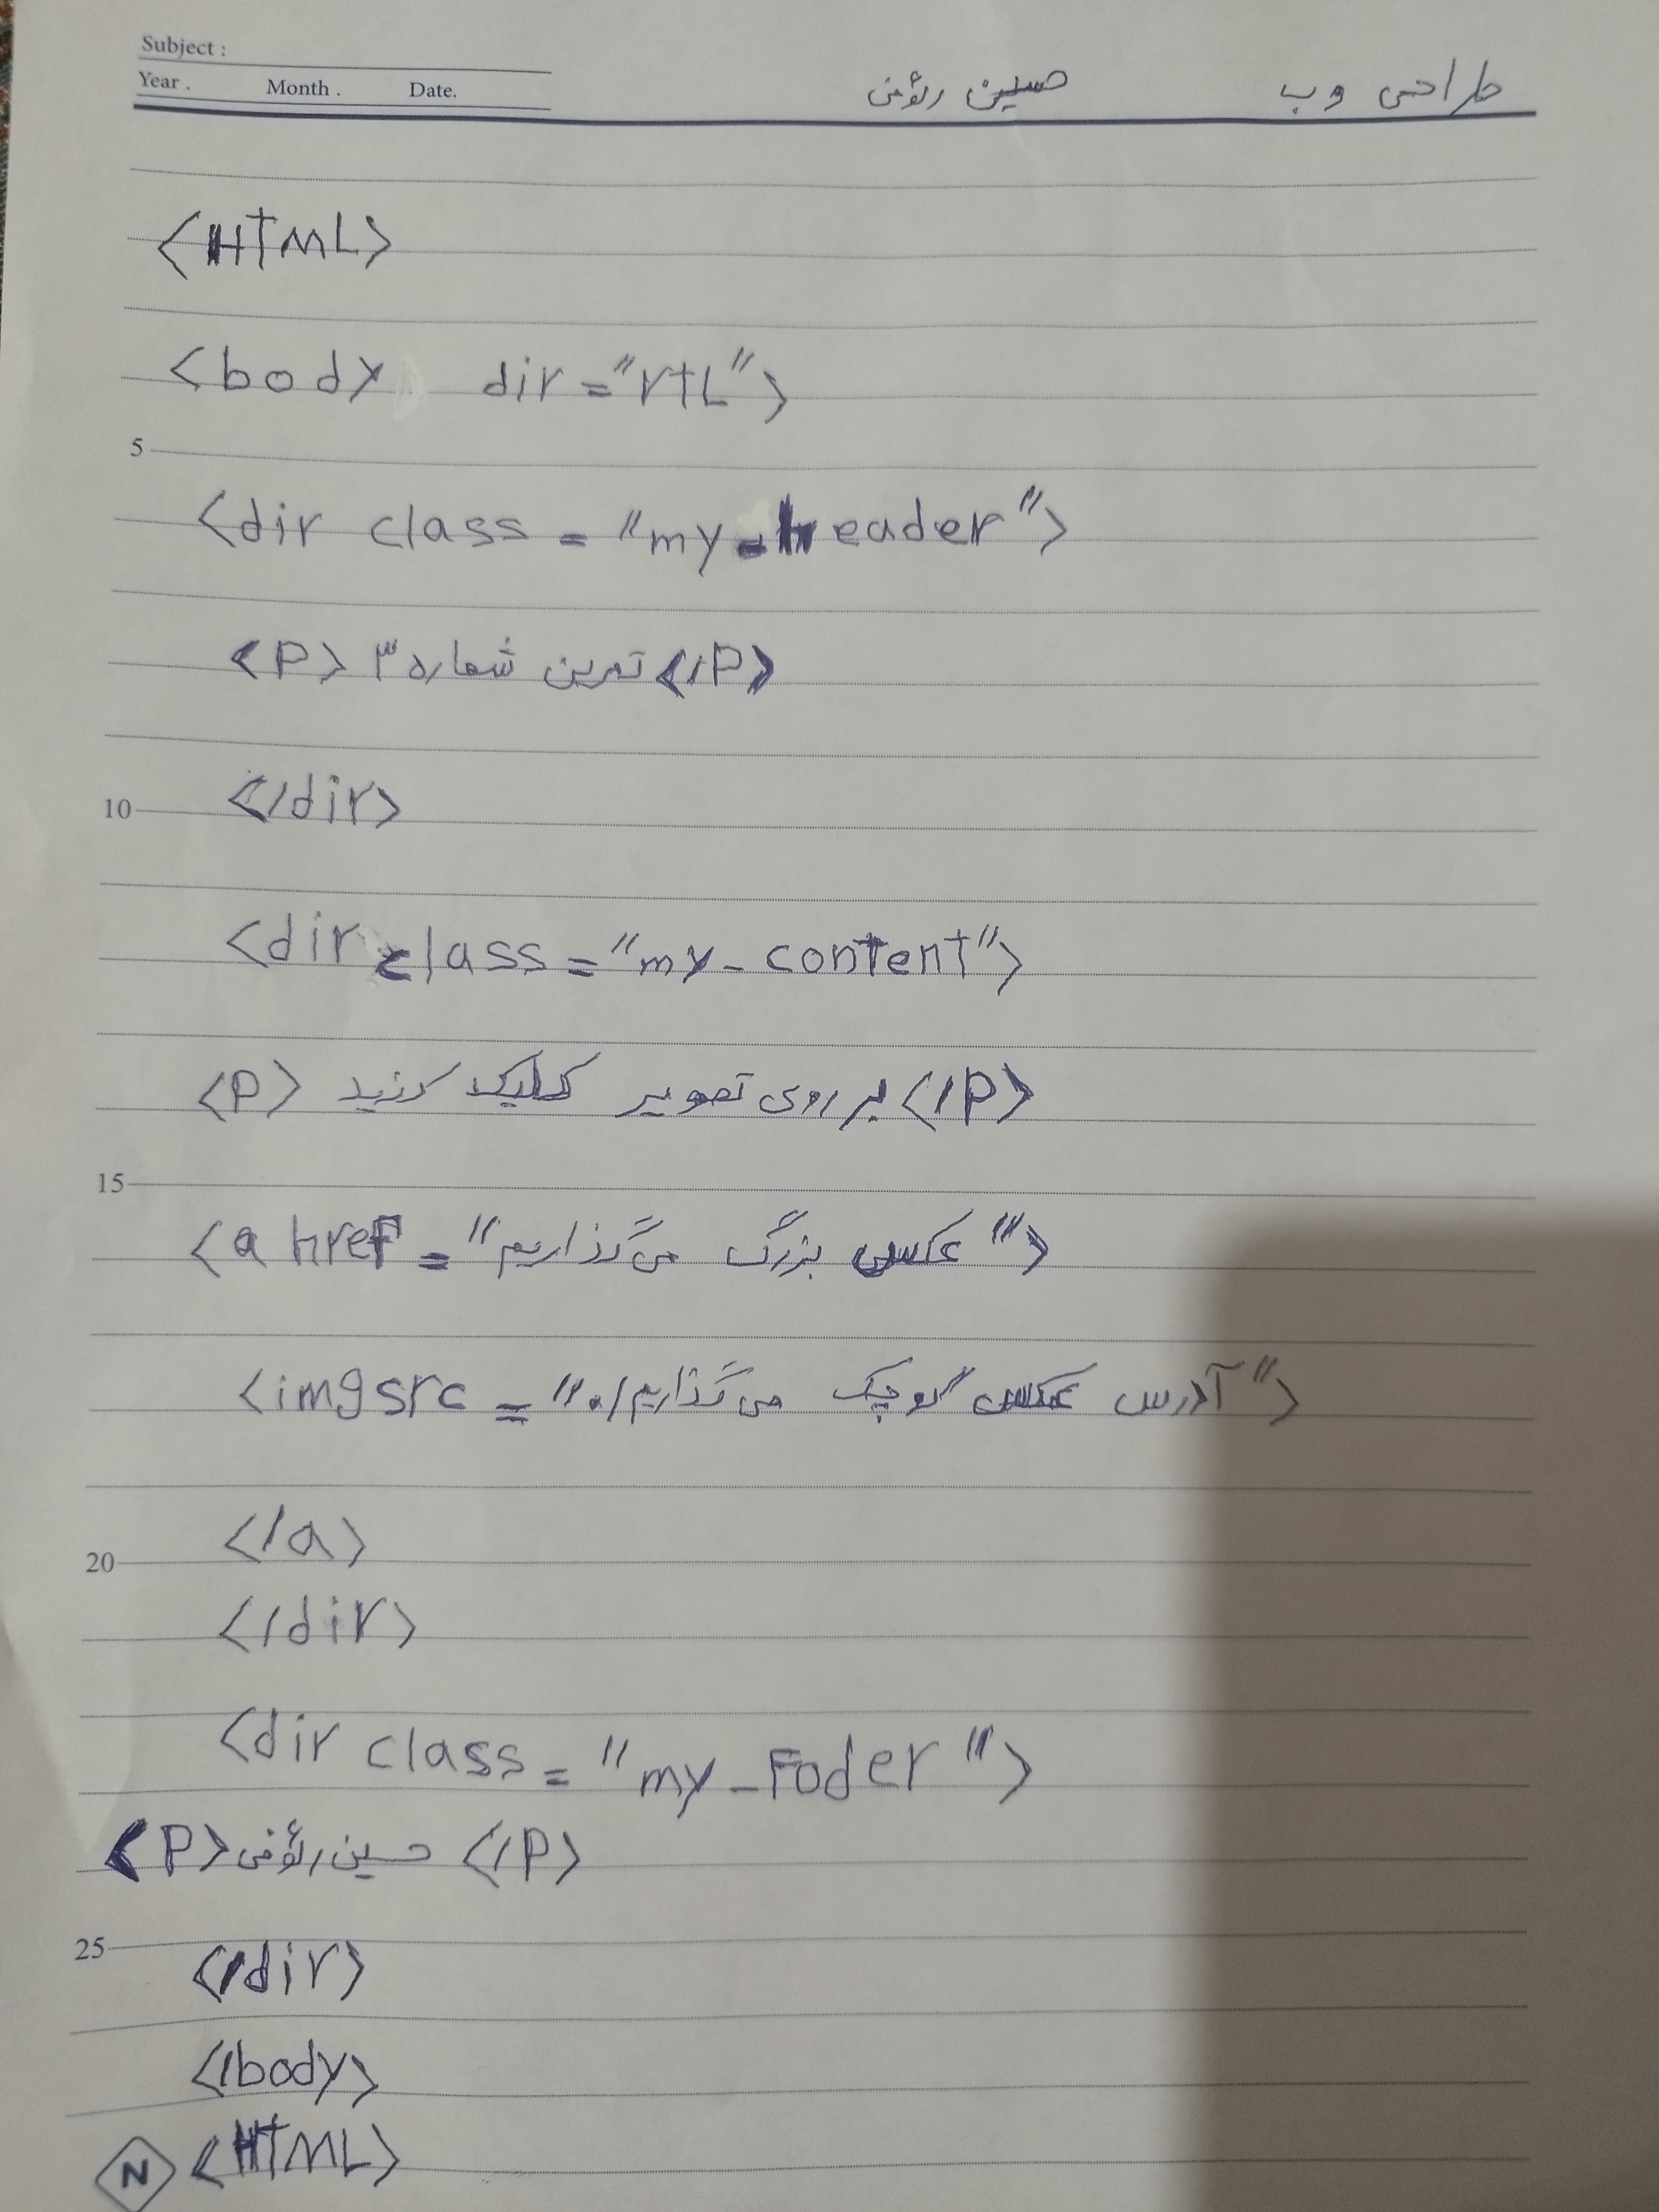 Subject :
Year . Month . Date.
طراحی وب حسین رئوفی
<HTML>
<body dir="rtL">
5
<dir class="my-header">
<P> تمرین شماره ۳ </P>
10
</dir>
<dir class="my-content">
<P> بر روی تصویر کلیک کنید </P>
15
<a href="عکس بزرگ می‌گذاریم">
<img src="آدرس عکس کوچک می‌گذاریم/.">
</a>
20
</dir>
<dir class="my-Foder">
<P> حسین رئوفی </P>
25
</dir>
</body>
<HTML>
N